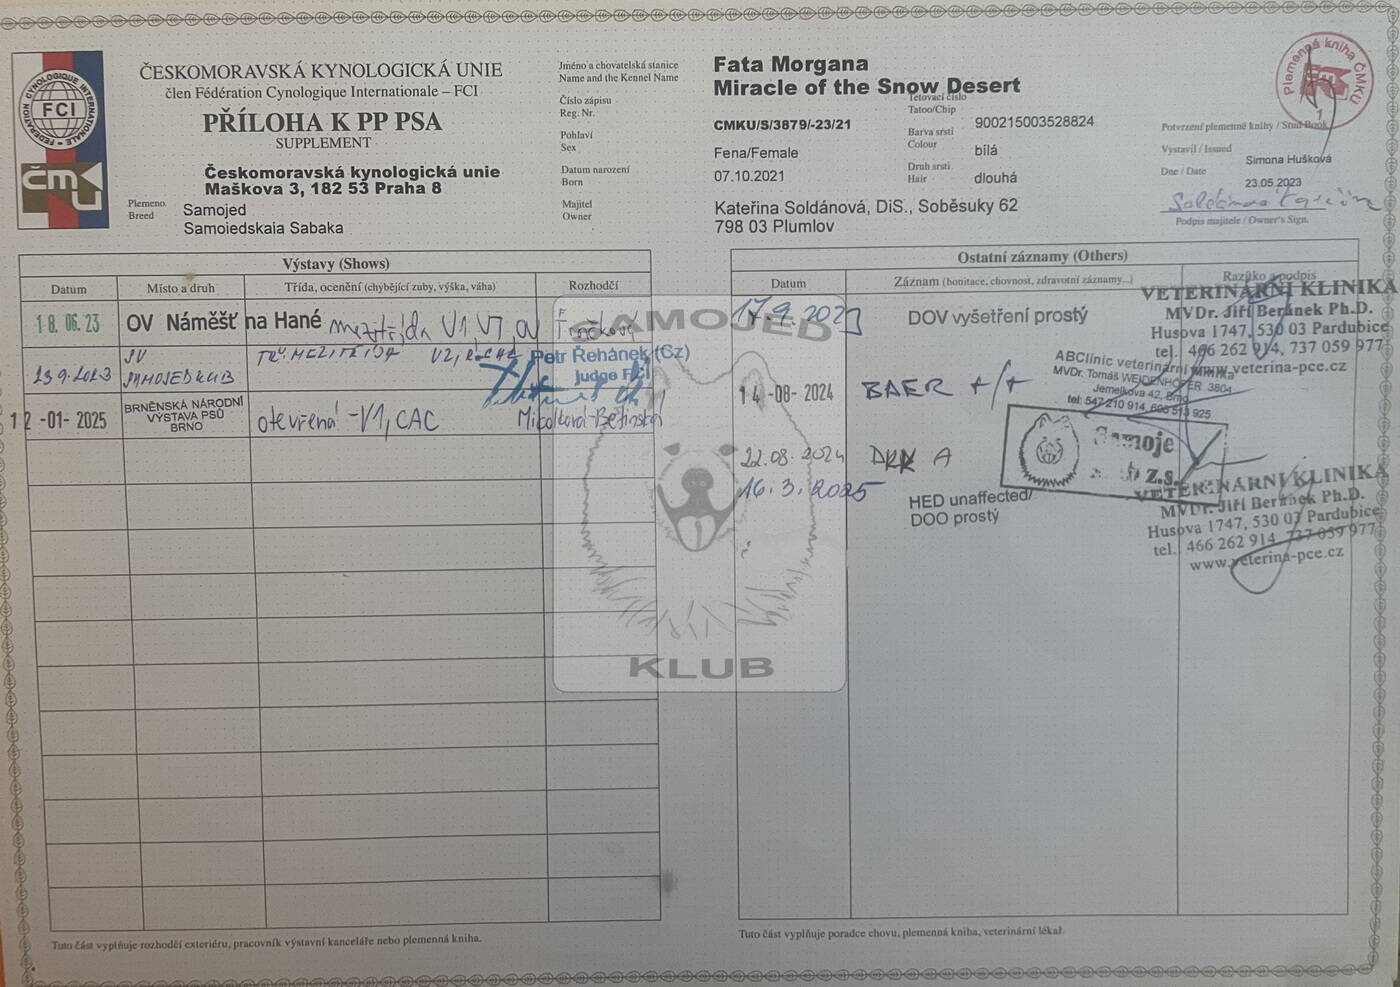 ČESKOMORAVSKÁ KYNOLOGICKÁ UNIE
člen Fédération Cynologique Internationale – FCI
PŘÍLOHA K PP PSA
SUPPLEMENT
Českomoravská kynologická unie
Maškova 3, 182 53 Praha 8
Plemeno
Breed
Samojed
Samoiedskaia Sabaka
FEDERATION CYNOLOGIQUE INTERNATIONALE
FCI
čmku
Jméno a chovatelská stanice
Name and the Kennel Name
Fata Morgana
Miracle of the Snow Desert
Číslo zápisu
Reg. Nr.
CMKU/S/3879/-23/21
Pohlaví
Sex
Fena/Female
Datum narození
Born
07.10.2021
Majitel
Owner
Kateřina Soldánová, DiS., Soběsuky 62
798 03 Plumlov
Tetovací číslo
Tatoo/Chip
900215003528824
Barva srsti
Colour
bílá
Druh srsti
Hair
dlouhá
Plemenná kniha ČMKU
1
Potvrzení plemenné knihy / Stud Book
Vystavil / Issued
Simona Hušková
Dne / Date
23.05.2023
Podpis majitele / Owner's Sign.
Výstavy (Shows)
Datum
Místo a druh
Třída, ocenění (chybějící zuby, výška, váha)
Rozhodčí
18. 06. 23
OV Náměšť na Hané
mezitřída V1, VT, OV
23.9.2023
SV
SAMOJEDKLUB
TŘ. MEZITŘÍDA V2, R.CAC
Petr Řehánek (Cz)
Judge FCI
12 -01- 2025
BRNĚNSKÁ NÁRODNÍ
VÝSTAVA PSŮ
BRNO
otevřená - V1, CAC
Tuto část vyplňuje rozhodčí exteriéru, pracovník výstavní kanceláře nebo plemenná kniha.
Ostatní záznamy (Others)
Datum
Záznam (bonitace, chovnost, zdravotní záznamy...)
Razítko a podpis
17.9.2023
DOV vyšetření prostý
VETERINÁRNÍ KLINIKA
MVDr. Jiří Beránek Ph.D.
Husova 1747, 530 03 Pardubice
tel. 466 262 914, 737 059 977
www.veterina-pce.cz
14 -08- 2024
BAER +/+
ABClinic veterinární klinika
MVDr. Tomáš WEIDENHÖFER 3804
Jemelkova 42, Brno
tel: 547 210 914, 606 513 925
22.08.2024
DKK A
Samoje
Z.S.
16.3.2025
HED unaffected/
DOO prostý
VETERINÁRNÍ KLINIKA
MVDr. Jiří Beránek Ph.D.
Husova 1747, 530 03 Pardubice
tel. 466 262 914, 737 059 977
www.veterina-pce.cz
Tuto část vyplňuje poradce chovu, plemenná kniha, veterinární lékař.
SAMOJED
KLUB